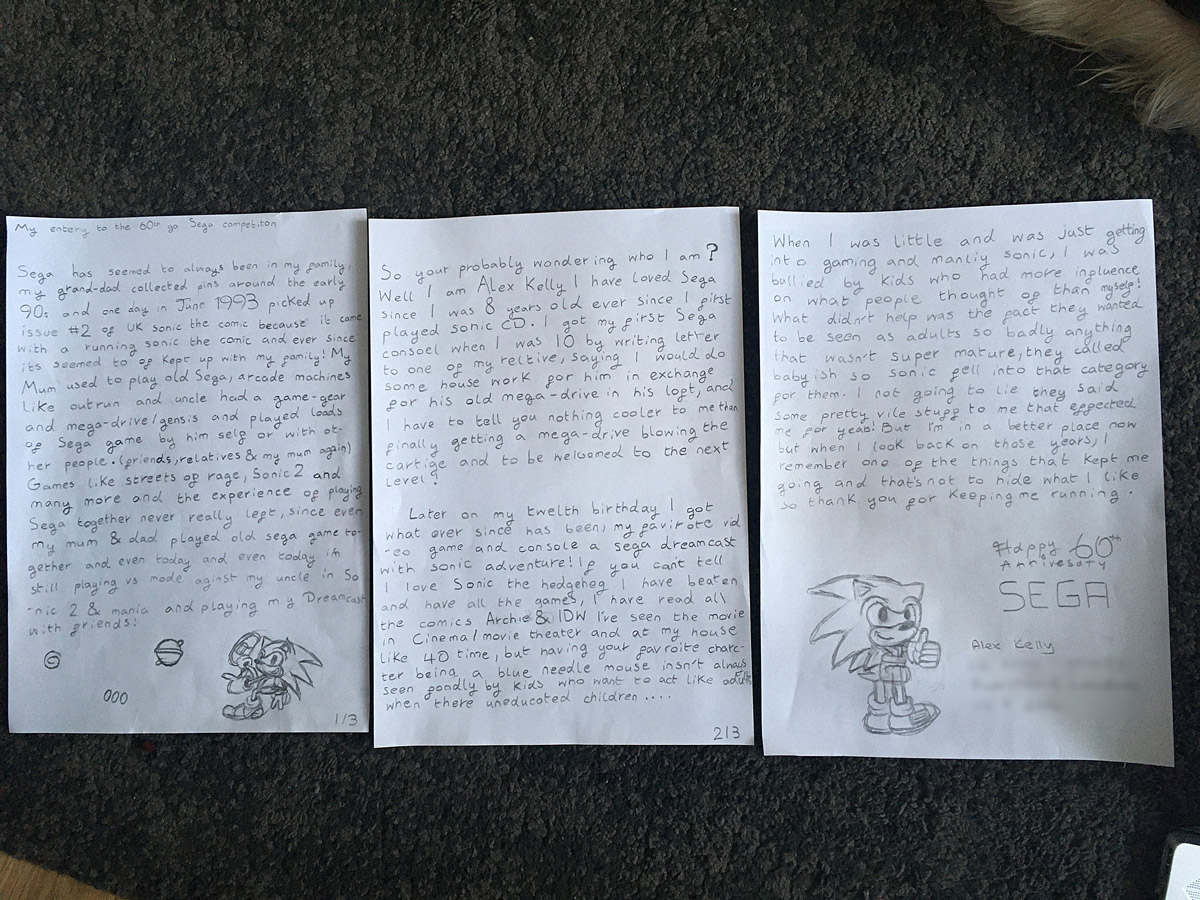 My entery to the 60th go Sega competiton
Sega has seemed to always been in my family,
my grand-dad collected pins around the early
90s and one day in June 1993 picked up
issue #2 of UK sonic the comic because it came
with a running sonic the comic and ever since
its seemed to of kept up with my family! My
Mum used to play old Sega, arcade machines
like outrun and uncle had a game-gear
and mega-drive/gensis and played loads
of Sega game by him self or with ot-
her people. (friends, relatives & my mum again)
Games like streets of rage, Sonic 2 and
many more and the experience of playing
Sega together never really left, since even
my mum & dad played old sega game to-
gether and even today and even today im
still playing vs mode aginst my uncle in So
-nic 2 & mania and playing my Dreamcast
with friends!
1/3
So your probably wondering who I am?
Well I am Alex Kelly I have loved Sega
since I was 8 years old ever since I first
played sonic CD. I got my first Sega
consoel when I was 10 by writing letter
to one of my reltive, saying I would do
some house work for him in exchange
for his old mega-drive in his loft, and
I have to tell you nothing cooler to me than
finally getting a mega-drive blowing the
cartige and to be welcomed to the next
level!
Later on my twelth birthday I got
what ever since has been, my favirote vid
-eo game and console a sega dreamcast
with sonic adventure! If you can't tell
I love Sonic the hedgehog I have beaten
and have all the games, I have read all
the comics Archie & IDW I've seen the movie
in Cinema/movie theater and at my house
like 40 time, but having your favroite charc-
ter being a blue needle mouse insn't always
seen goodly by kids who want to act like adults
when there uneducated children....
2/3
When I was little and was just getting
into gaming and manliy sonic, I was
bullied by kids who had more influence
on what people thought of than myself!
What didn't help was the fact they wanted
to be seen as adults so badly anything
that wasn't super mature, they called
baby ish so sonic fell into that category
for them. I not going to lie they said
some pretty vile stuff to me that effected
me for years! But I'm in a better place now
but when I look back on those years, I
remember one of the things that kept me
going and that's not to hide what I like
so thank you for keeping me running.
Happy 60th
Annivesaty
SEGA
Alex Kelly